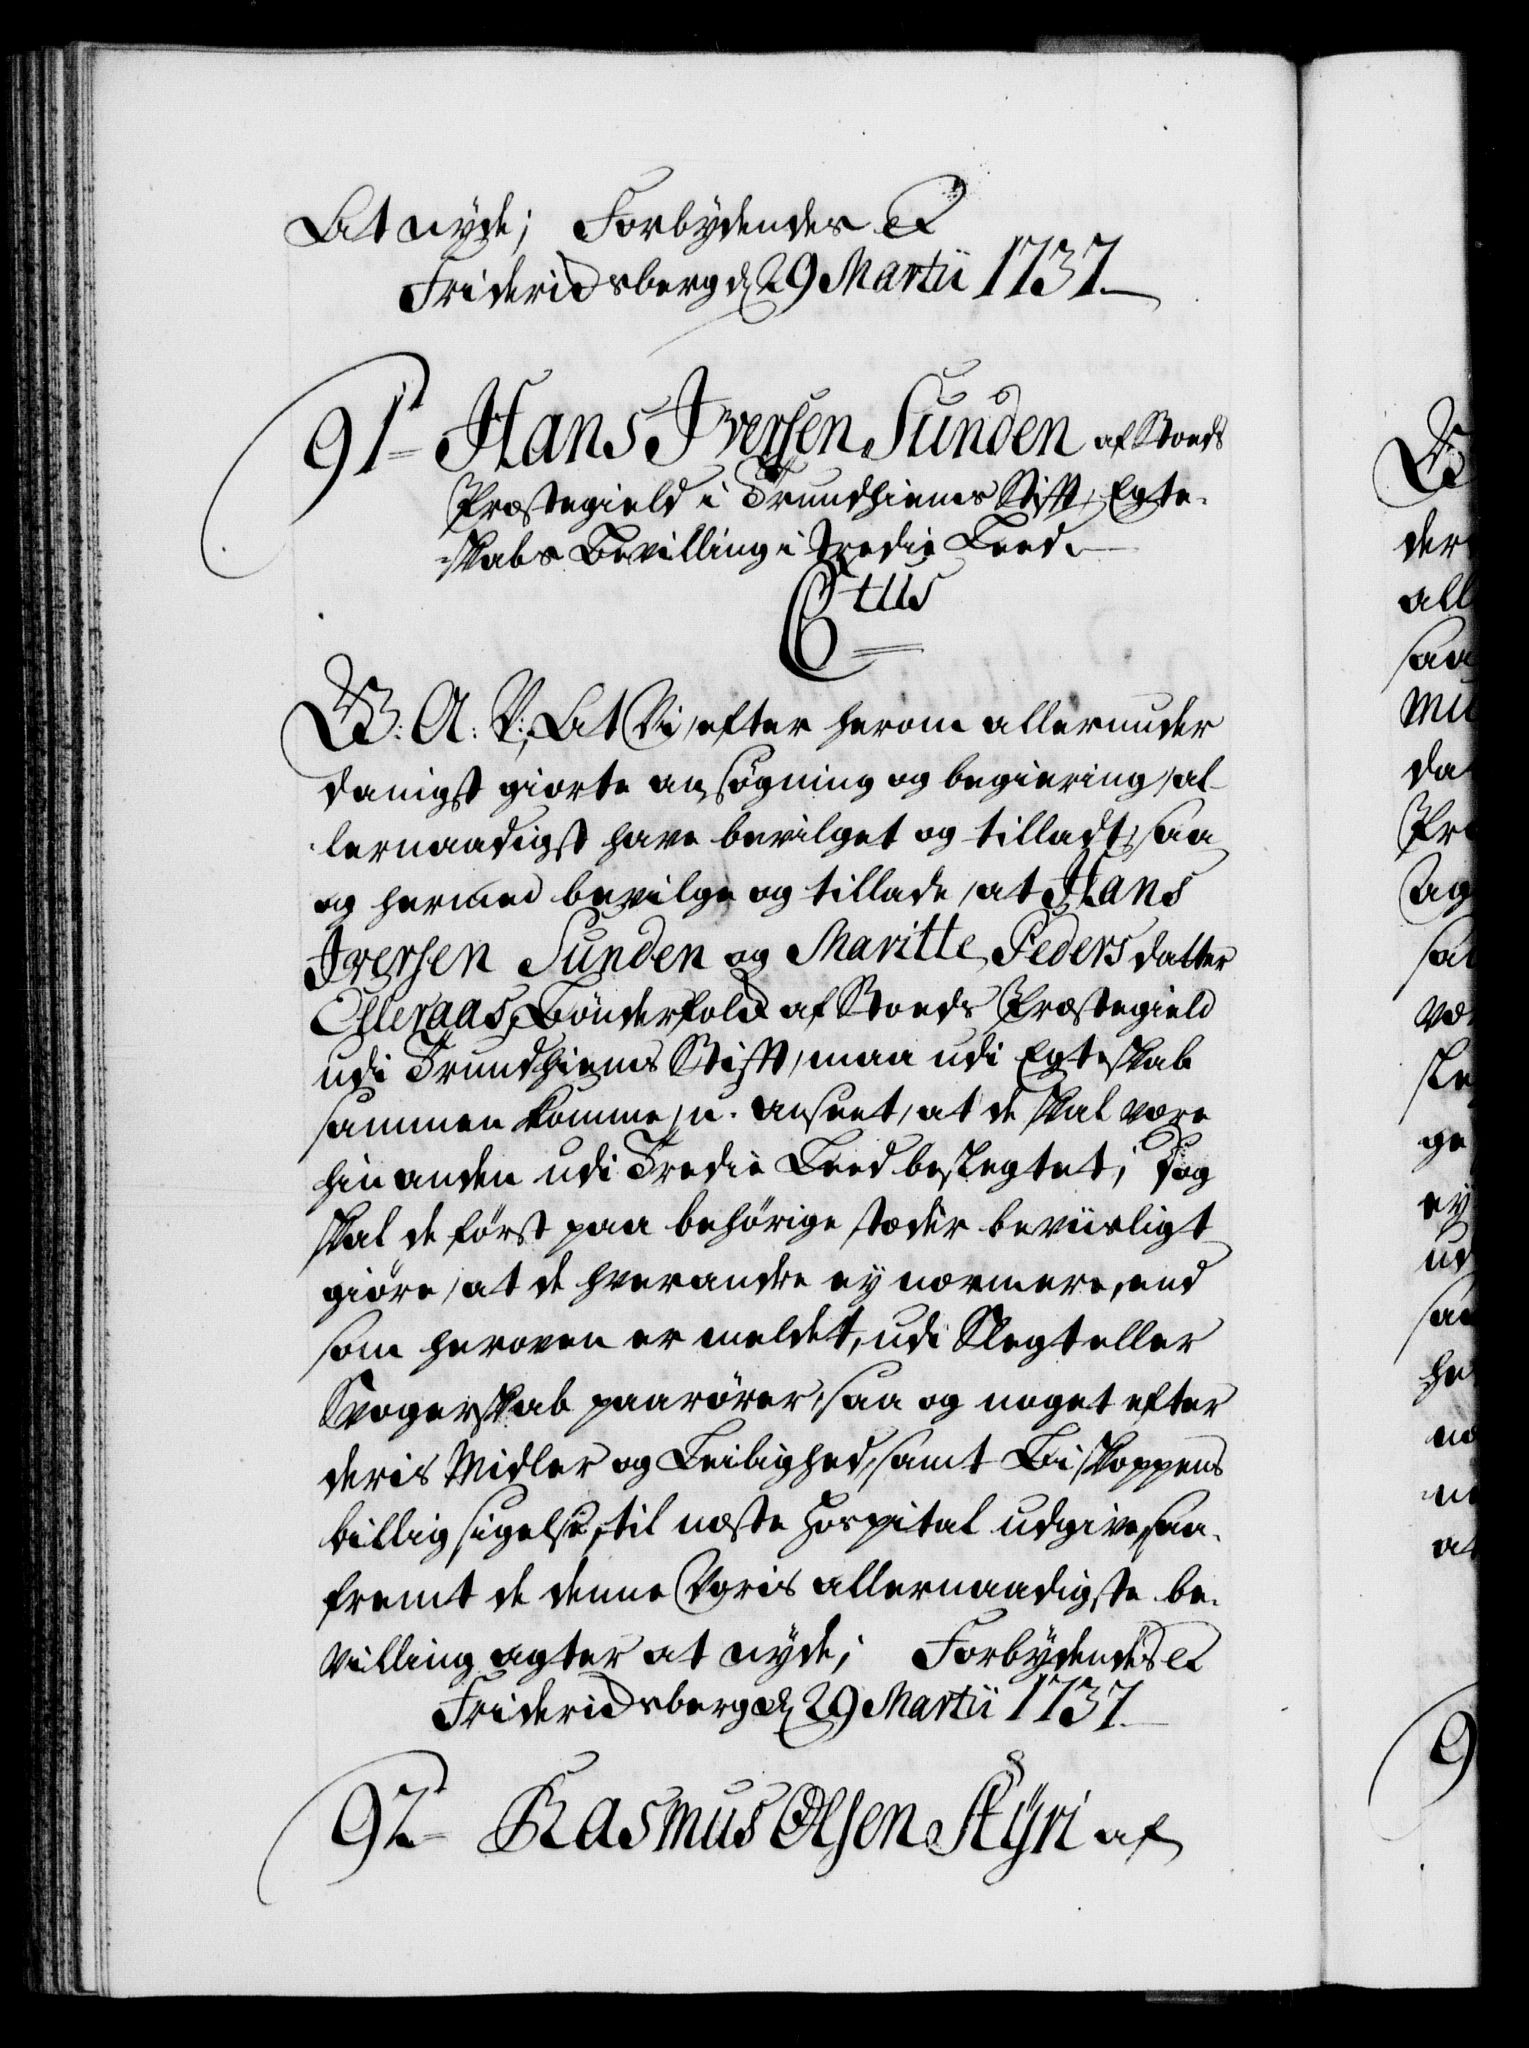 At nyde; Forbydendes &c
Friderichsberg d. 29 Martii 1737
91 Hans Iversen Sunden af Stords
Præstegield i Trundhiems Stift, Egte-
skabs Bevilling i tredie Leed.
C tus
G: A: V:, At Vi, efter herom allerunder
danigst giorte ansøgning og begiering, al-
lernaadigst have bevilget og tilladt, saa
og hermed bevilge og tillade, at Hans
Iversen Sunden og Maritte Peders datter
Bønderfolck af Stords Præstegield
udi Trundhiems Stift, maa udi Egteskab
sammen komme, u-anseet, at de skal være
hinanden udi Tredie Leed beslegtet; Dog
skal de først paa behørige stæder beviisligt
giøre, at de hverandre ey nærmere, end
som heroven er meldet, udi Slegt eller
Svogerskab paarører, saa og noget efter
deris Midler og Leilighed, samt Biskoppens
billigsigelse, til næste Hospital udgive, saa-
fremt de denne Voris allernaadigste be-
villing agter at nyde; Forbydendes &c
Friderichsberg d. 29 Martii 1737
92 Rasmus Olsen Styri af